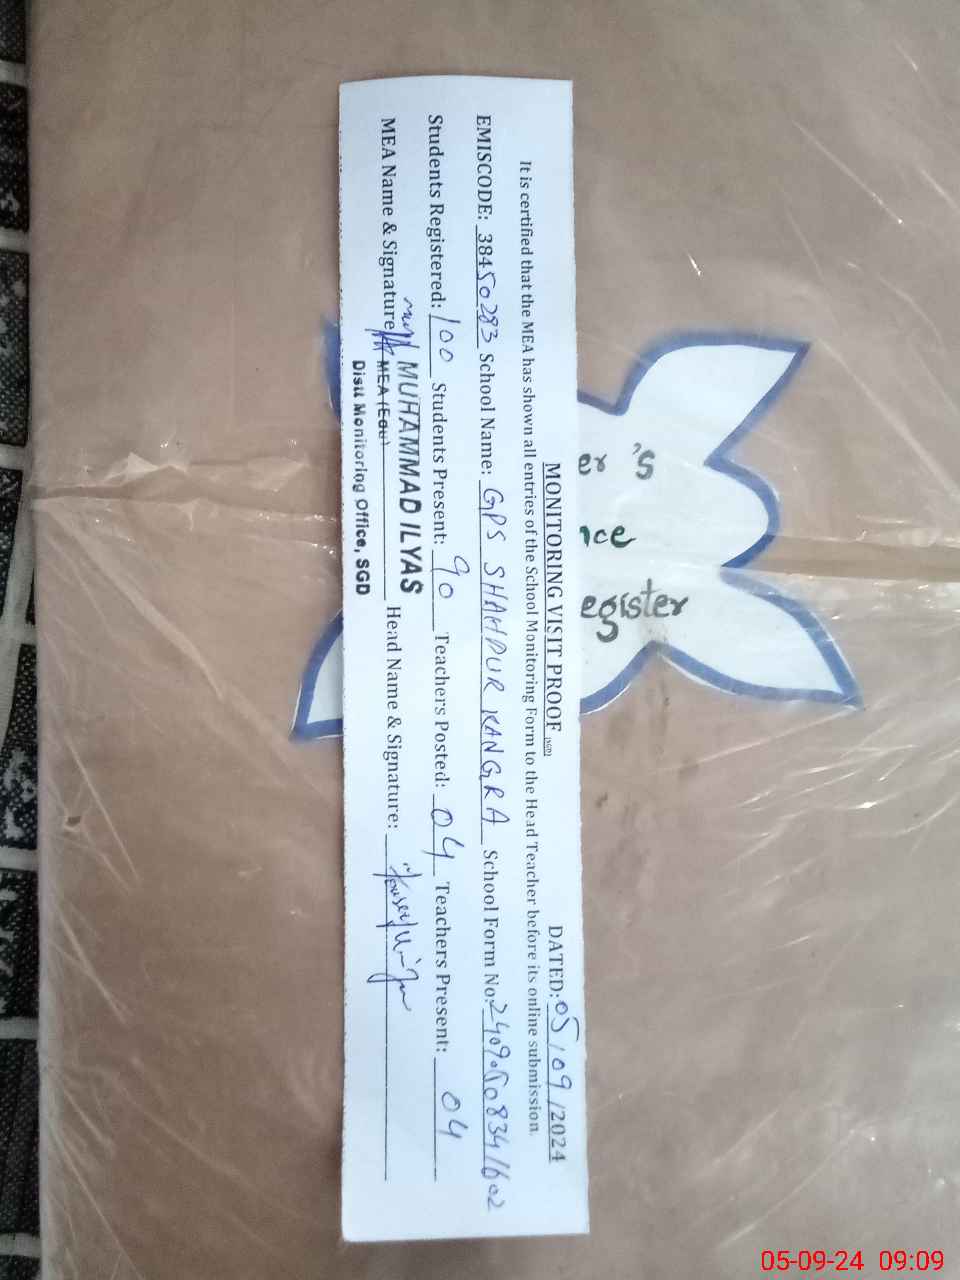 MONITORING VISIT PROOF (SGD)
DATED: 05/09/2024
It is certified that the MEA has shown all entries of the School Monitoring Form to the Head Teacher before its online submission.
EMISCODE: 38450283 School Name: GPS SHAHPUR KANGRA School Form No: 24090508341602
Students Registered: 100 Students Present: 90 Teachers Posted: 04 Teachers Present: 04
MEA Name & Signature: MUHAMMAD ILYAS Head Name & Signature:
MEA (Edu)
Distt Monitoring Office, SGD
er's
nce
egister
05-09-24 09:09